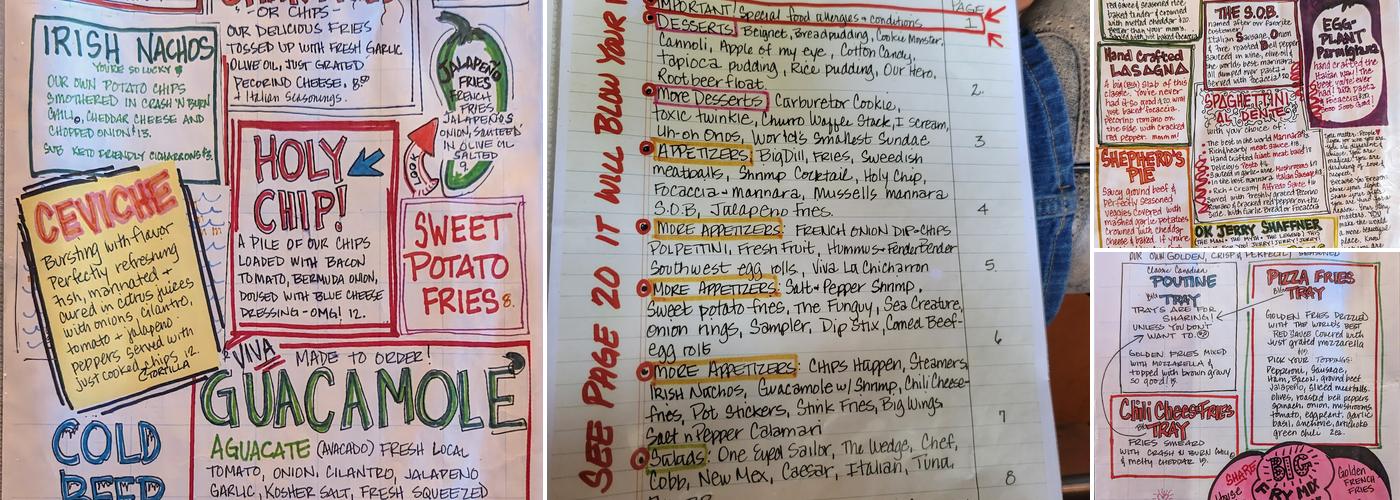 OR CHIPS-
OUR DELICIOUS FRIES
TOSSED UP WITH FRESH GARLIC
OLIVE OIL, JUST GRATED
PECORINO CHEESE. 8.50
+ Italian Seasonings.
IRISH NACHOS
YOU'RE SO LUCKY
OUR OWN POTATO CHIPS
SMOTHERED IN CRASH N BURN
CHILI, CHEDDAR CHEESE AND
CHOPPED ONION $13.
SUB KETO FRIENDLY CICHARRONS $3.
JALAPEÑO
FRIES
FRENCH
FRIES,
JALAPEÑOS
ONION, SAUTEED
IN OLIVE OIL
SALTED
9.
LOOK
HOLY
CHIP!
A PILE OF OUR CHIPS
LOADED WITH BACON
TOMATO, BERMUDA ONION,
DOUSED WITH BLUE CHEESE
DRESSING - OMG! 12.
CEVICHE
Bursting with flavor
Perfectly refreshing
fish, marinated +
cured in citrus juices
with onions, cilantro,
tomato + jalapeno
peppers served with
just cooked chips 12.
TORTILLA
SWEET
POTATO
FRIES 8.
VIVA
MADE TO ORDER!
GUACAMOLE
AGUACATE (AVACADO) FRESH LOCAL
TOMATO, ONION, CILANTRO, JALAPENO
GARLIC, KOSHER SALT, FRESH SQUEEZED
COLD
BEER
SEE PAGE 20 IT WILL BLOW YOUR
PAGE
IMPORTANT! Special food allergies + conditions 1
DESSERTS: Beignet, Breadpudding, Cookie Monster,
Cannoli, Apple of my eye, Cotton Candy,
tapioca pudding, Rice pudding, Our Hero,
Root beer float. 2.
More Desserts: Carburetor Cookie,
toxic twinkie, Churro Waffle Stack, I scream,
Uh-oh Oreos, World's smallest Sundae 3
APPETIZERS: Big Dill, Fries, Sweedish
meatballs, Shrimp Cocktail, Holy Chip,
Focaccia-marinara, Mussells marinara
S.O.B, Jalapeno fries. 4
MORE APPETIZERS: FRENCH ONION DIP-CHIPS
POLPETTINI, Fresh Fruit, Hummus-Fender Bender
Southwest egg rolls, Viva La Chicharron 5.
MORE APPETIZERS: Salt + Pepper Shrimp,
Sweet potato fries, The Funguy, Sea Creature,
onion rings, Sampler, Dip Stix, Corned Beef-
egg rolls 6
MORE APPETIZERS: CHIPS HAPPEN, Steamers
IRISH Nachos, Guacamole w/ Shrimp, Chili Cheese-
fries, Pot Stickers, Stink Fries, Big Wings
Salt n Pepper Calamari 7
Salads: One Eyed Sailor, The Wedge, Chef,
Cobb, New Mex, Caesar, Italian, Tuna, 8
Hand Crafted
LASAGNA
A big (BIG) Slab of this
classic. You've never
had it so good $20. with
just baked focaccia
pecorino romano on
the side with cracked
red pepper. mmm!
SHEPHERD'S
PIE
Saucy ground beef &
perfectly seasoned
veggies covered with
mashed garlic potatoes
crowned with cheddar
cheese & baked.
THE S.O.B.
named after our favorite
customer.
Italian Sausage, Onion
& fire roasted Bell pepper
Sauteed in wine, olive oil &
the worlds best marinara
EGG-
PLANT
Parmigiana
SPAGHETTINI
AL DENTE
with your choice of:
The best in the world Marinara
OK JERRY SHAFFNER
THE MAN - THE MYTH - THE LEGEND!
OUR OWN GOLDEN, CRISP & PERFECTLY SEASONED
Classic Canadian
POUTINE
BIG TRAY
TRAYS ARE FOR
SHARING!
UNLESS YOU DON'T
WANT TO.
GOLDEN FRIES MIXED
WITH MOZZARELLA &
topped with brown gravy
so good! 15.
PIZZA FRIES
BIG TRAY
GOLDEN FRIES DRIZZLED
WITH THE WORLD'S BEST
RED SAUCE Covered with
Just grated mozzarella
PICK YOUR TOPPINGS:
Pepperoni, Sausage,
Ham, Bacon, ground beef
Jalapeño, sliced meatballs,
olives, roasted bell peppers
spinach, onion, mushrooms
tomato, eggplant, garlic
basil, anchovie, artichoke
green chili 2ea.
Chili Cheese FRIES
BIG TRAY
FRIES SMEARD
WITH CRASH N BURN CHILI
& melty cheddar 15.
SHARE
BIG
FRY MIX
Golden
FRENCH
FRIES